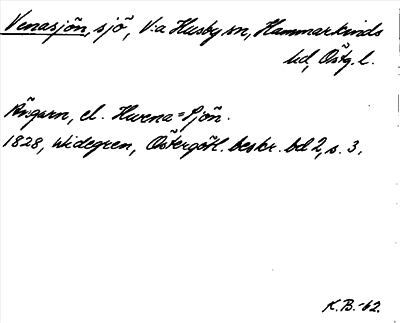 Venasjön, sjö, V:a Husby sn, Hammarkinds
hd, Östg. l.
Ängarn, el. Hwena=Sjön.
1828, Widegren, Östergötl. beskr. bd 2, s. 3.
K.B.-62.